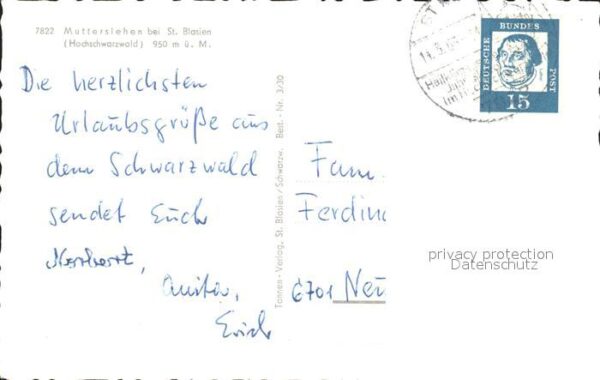 7822 Mutterslehen bei St. Blasien
(Hochschwarzwald) 950 m ü. M.
Die herzlichsten
Urlaubsgrüße aus
dem Schwarzwald
sendet Euch
Norbert,
Anita,
Erich
Tannen-Verlag, St. Blasien/Schwarzw. Best.-Nr. 3/30
DEUTSCHE BUNDES POST
15
Fam.
Ferdin
6701 Neu
privacy protection
Datenschutz